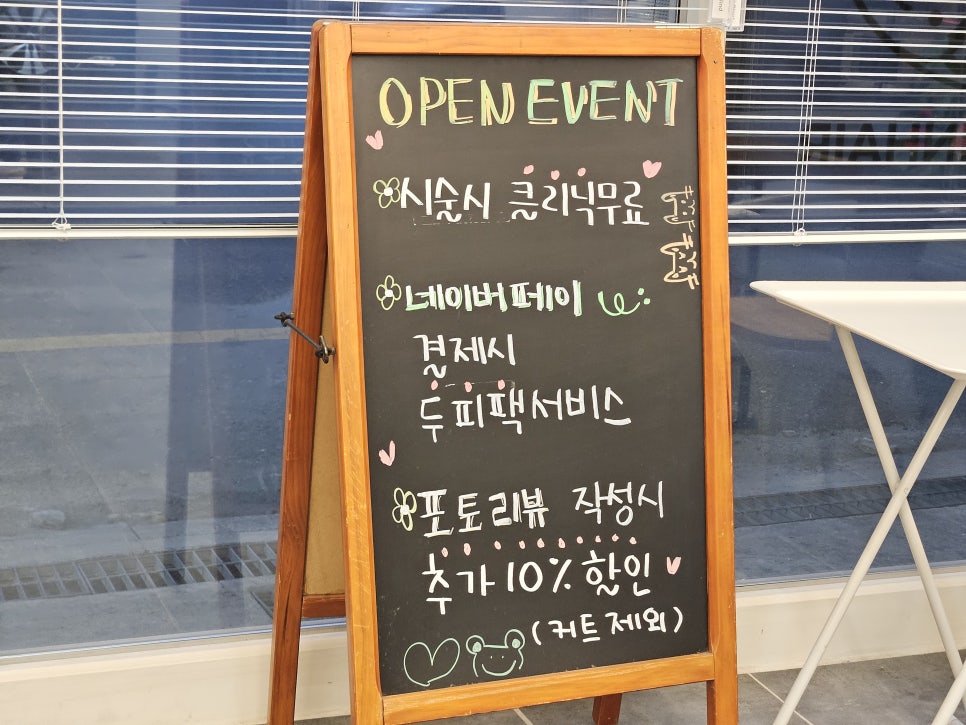 OPEN EVENT
시술시 클리닉무료
네이버페이
결제시
두피팩서비스
포토리뷰 작성시
추가 10% 할인
(커트제외)